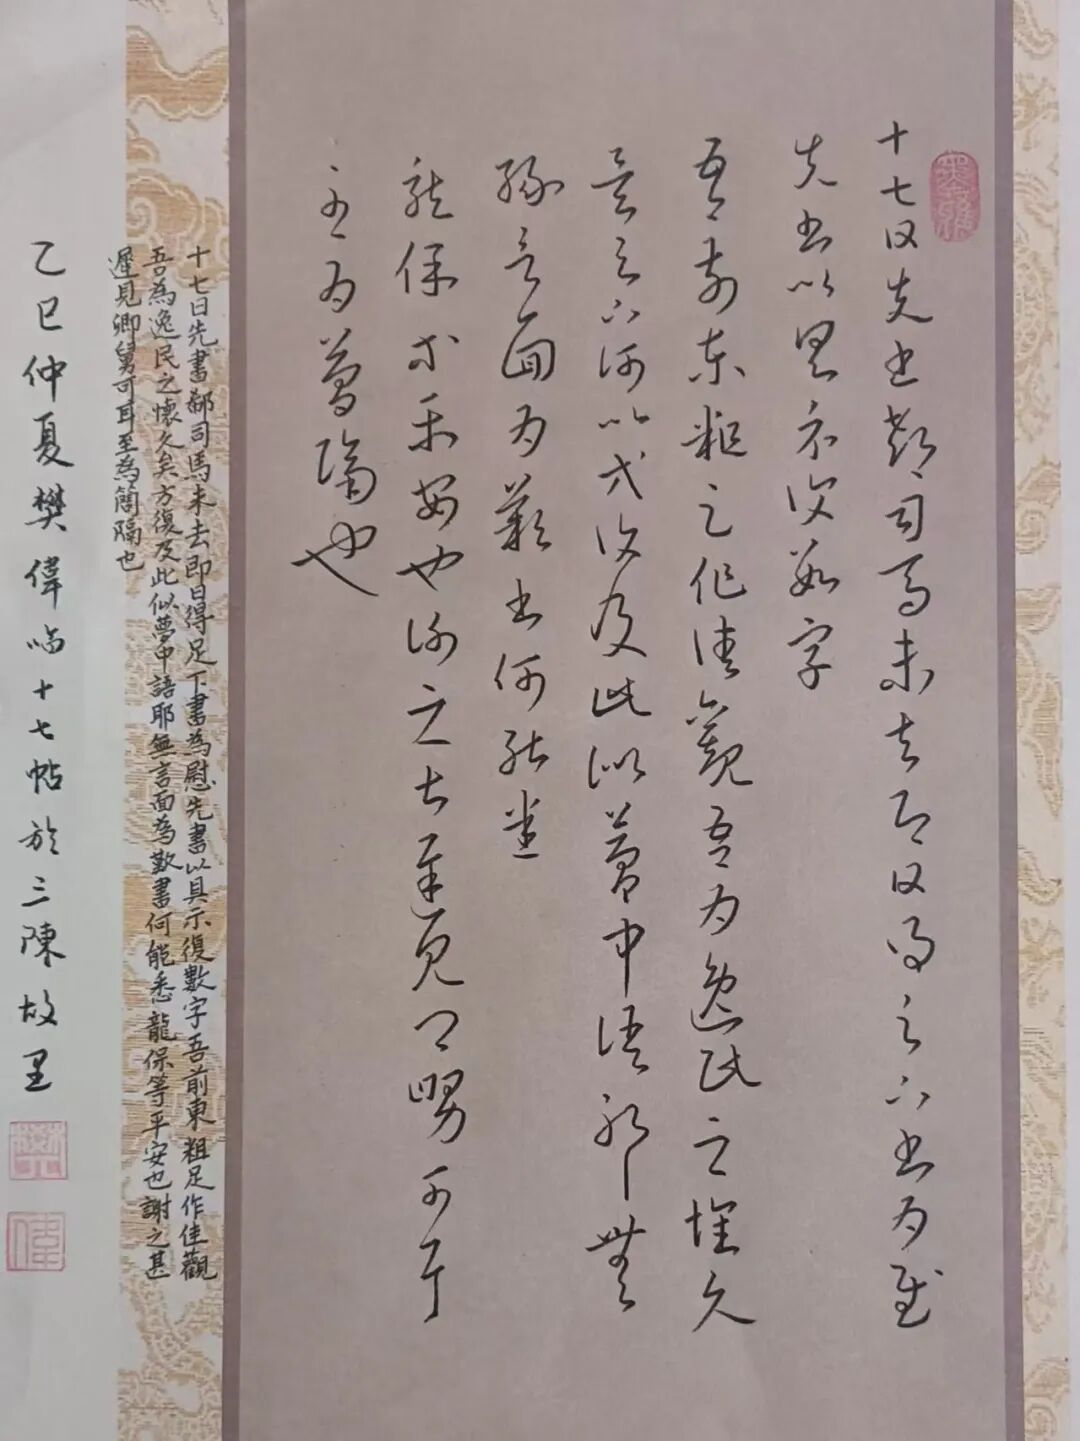 十七日先書郗司馬未去即日得足下書為慰
先書以具示復數字
吾前東粗足作佳觀吾為逸民之懷久
矣足下何以方復及此似夢中語耶無
緣言面為歎書何能悉
龍保等平安也謝之甚遲見卿舅可耳
至為簡隔也
十七日先書郗司馬未去即日得足下書為慰先書以具示復數字吾前東粗足作佳觀
吾為逸民之懷久矣方復及此似夢中語耶無言面為歎書何能悉龍保等平安也謝之甚
遲見卿舅可耳至為簡隔也
乙巳仲夏樊偉臨十七帖於三陳故里
樊
偉